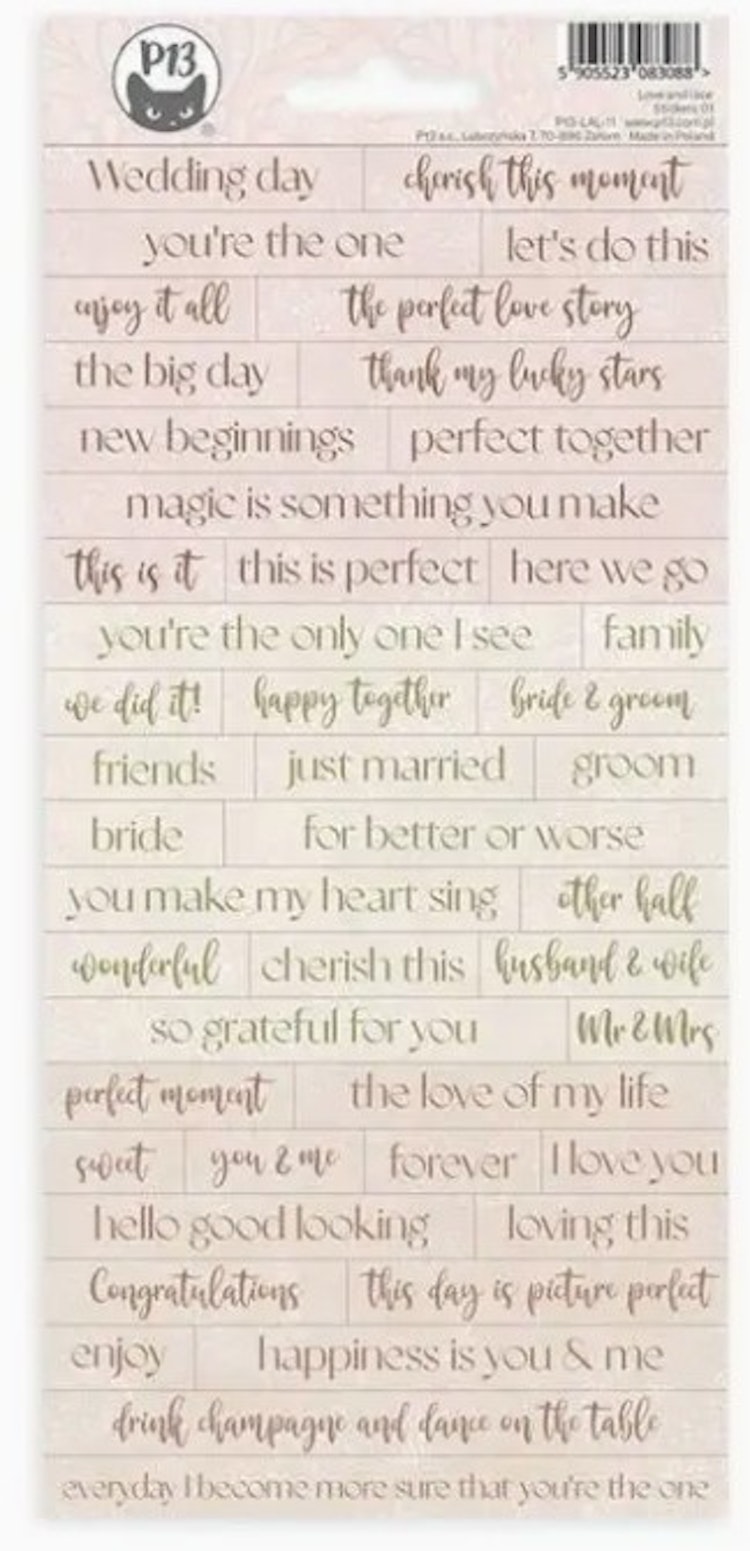 P13
5 905523 083088 >
Love and lace
Stickers 01
P13-LAL-11 www.p13.com.pl
P13 s.c., Made in Poland
Wedding day cherish this moment
you're the one let's do this
enjoy it all the perfect love story
the big day thank my lucky stars
new beginnings perfect together
magic is something you make
this is it this is perfect here we go
you're the only one I see family
we did it! happy together bride & groom
friends just married groom
bride for better or worse
you make my heart sing other half
wonderful cherish this husband & wife
so grateful for you Mr & Mrs
perfect moment the love of my life
sweet you & me forever I love you
hello good looking loving this
Congratulations this day is picture perfect
enjoy happiness is you & me
drink champagne and dance on the table
everyday I become more sure that you're the one